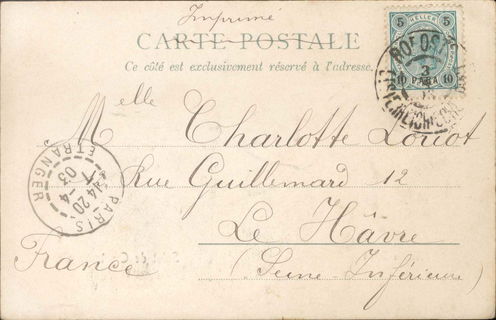 Imprimé
CARTE POSTALE
Ce côté est exclusivement réservé à l'adresse.
5 HELLER 5
10 PARA 10
3
Melle Charlotte Loucot
Rue Guillemard 12
Le Hâvre
(Seine Inférieure)
France
PARIS
ETRANGER
20
4
03